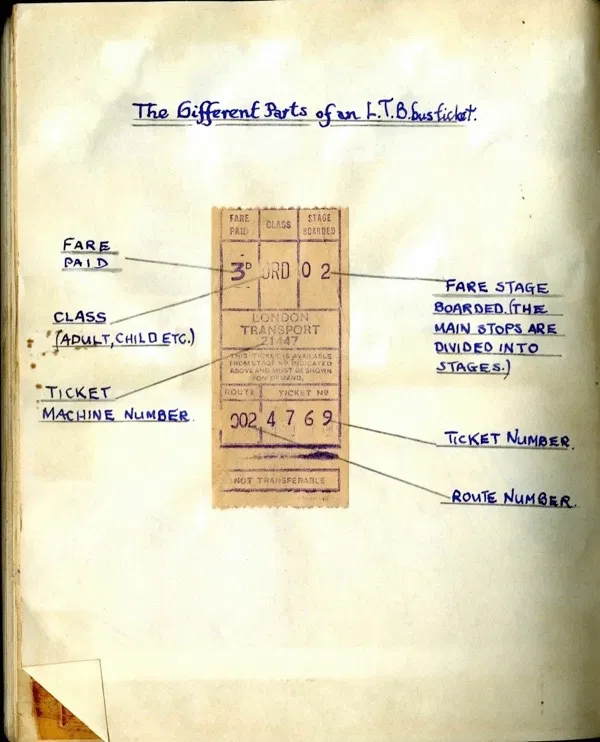 The Different Parts of an L.T.B. bus ticket.
FARE
PAID
CLASS
(ADULT, CHILD ETC.)
TICKET
MACHINE NUMBER.
FARE PAID
CLASS
STAGE BOARDED
3D
ORD
02
LONDON
TRANSPORT
21447
THIS TICKET IS AVAILABLE
FROM STAGE Nº INDICATED
ABOVE AND MUST BE SHOWN
ON DEMAND.
ROUTE
TICKET Nº
002
4769
NOT TRANSFERABLE
FARE STAGE
BOARDED. (THE
MAIN STOPS ARE
DIVIDED INTO
STAGES.)
TICKET NUMBER.
ROUTE NUMBER.